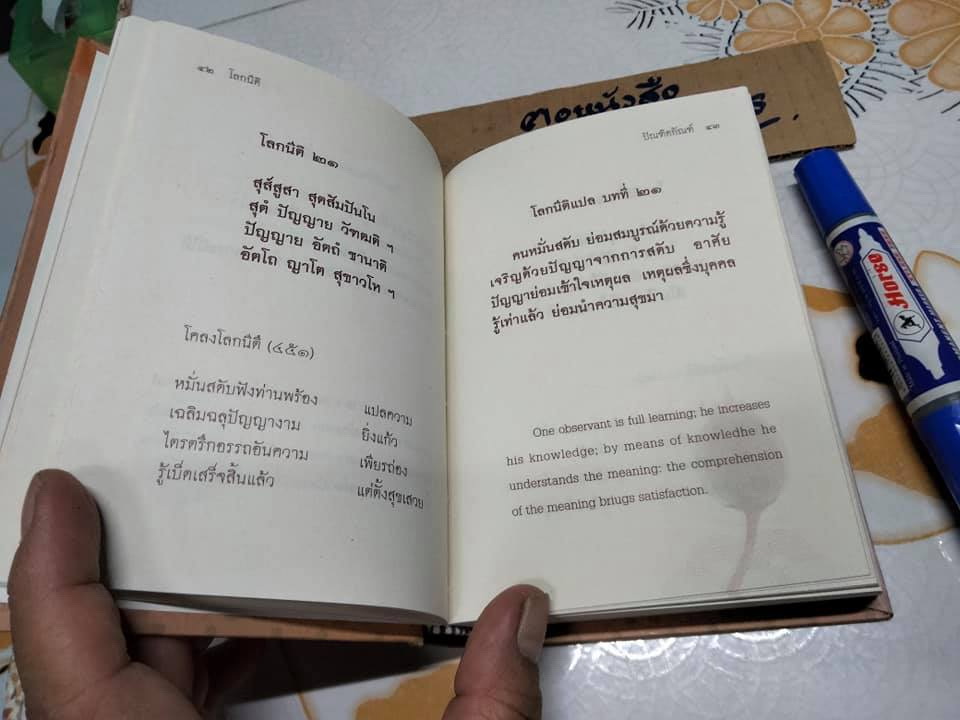 ๔๒ โลกนีติ
โลกนีติ ๒๑
สุสฺสูสา สุตสมฺปนฺโน
สุตํ ปญฺญาย วฑฺฒติ ฯ
ปญฺญาย อตฺถํ ชานาติ
อตฺโถ ญาโต สุขาวโห ฯ
โคลงโลกนิติ (๔๕๑)
หมั่นสดับฟังท่านพร้อง แปลความ
เฉลิมฉลุปัญญางาม ยิ่งแก้ว
ไตรตรึกอรรถอันความ เพียรถ่อง
รู้เบ็ดเสร็จสิ้นแล้ว แต่ตั้งสุขเสวย
ตงหนังสือ
ปัณฑิตภัณฑ์ ๔๓
โลกนีติแปล บทที่ ๒๑
คนหมั่นสดับ ย่อมสมบูรณ์ด้วยความรู้
เจริญด้วยปัญญาจากการสดับ อาศัย
ปัญญาย่อมเข้าใจเหตุผล เหตุผลซึ่งบุคคล
รู้เท่าแล้ว ย่อมนำความสุขมา
One observant is full learning; he increases
his knowledge; by means of knowledhe he
understands the meaning: the comprehension
of the meaning briugs satisfaction.
Horse